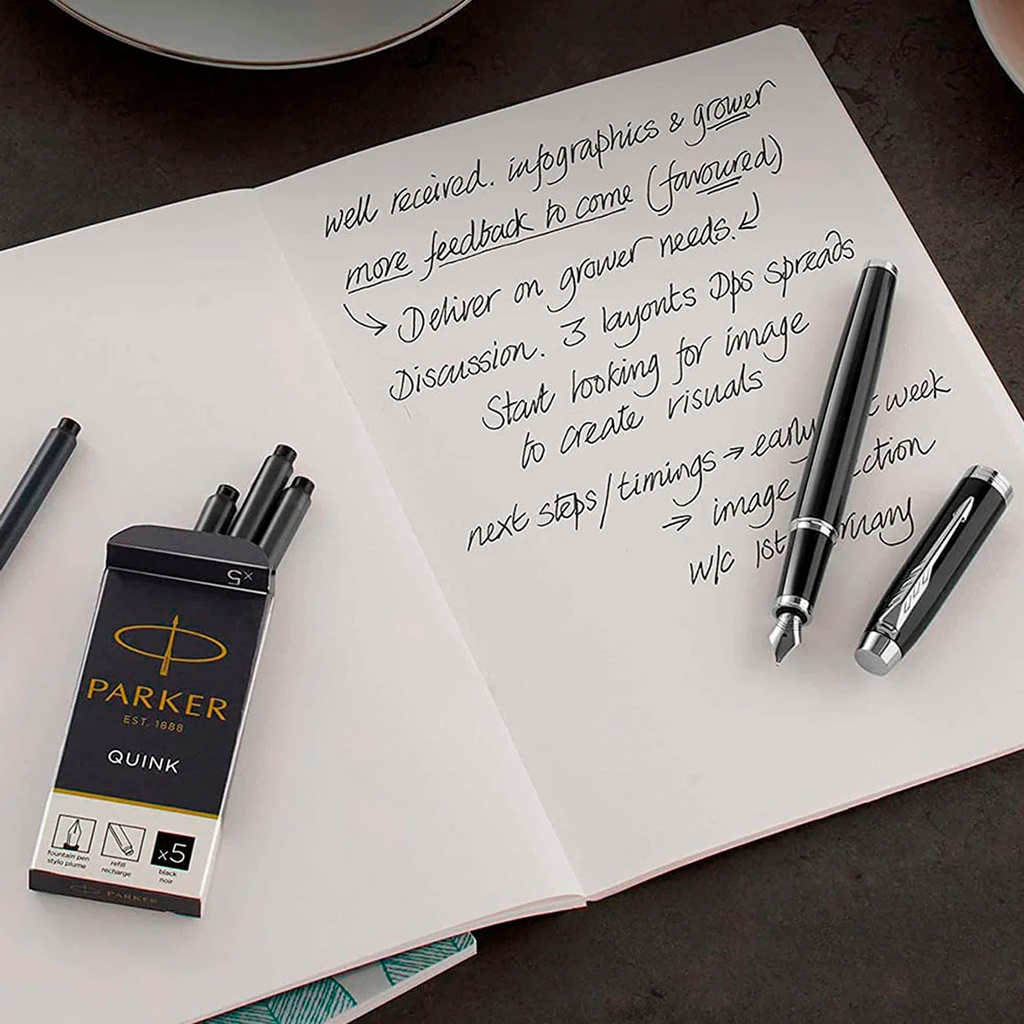 well received. infographics & grower
more feedback to come (favoured)
→ Deliver on grower needs. ↲
Discussion. 3 layouts Dps spreads
Start looking for image
to create visuals
next steps/timings → early week
⇒ image
w/c 1st
x5
PARKER
EST. 1888
QUINK
fountain pen
stylo plume
refill
recharge
x5
black
noir
PARKER